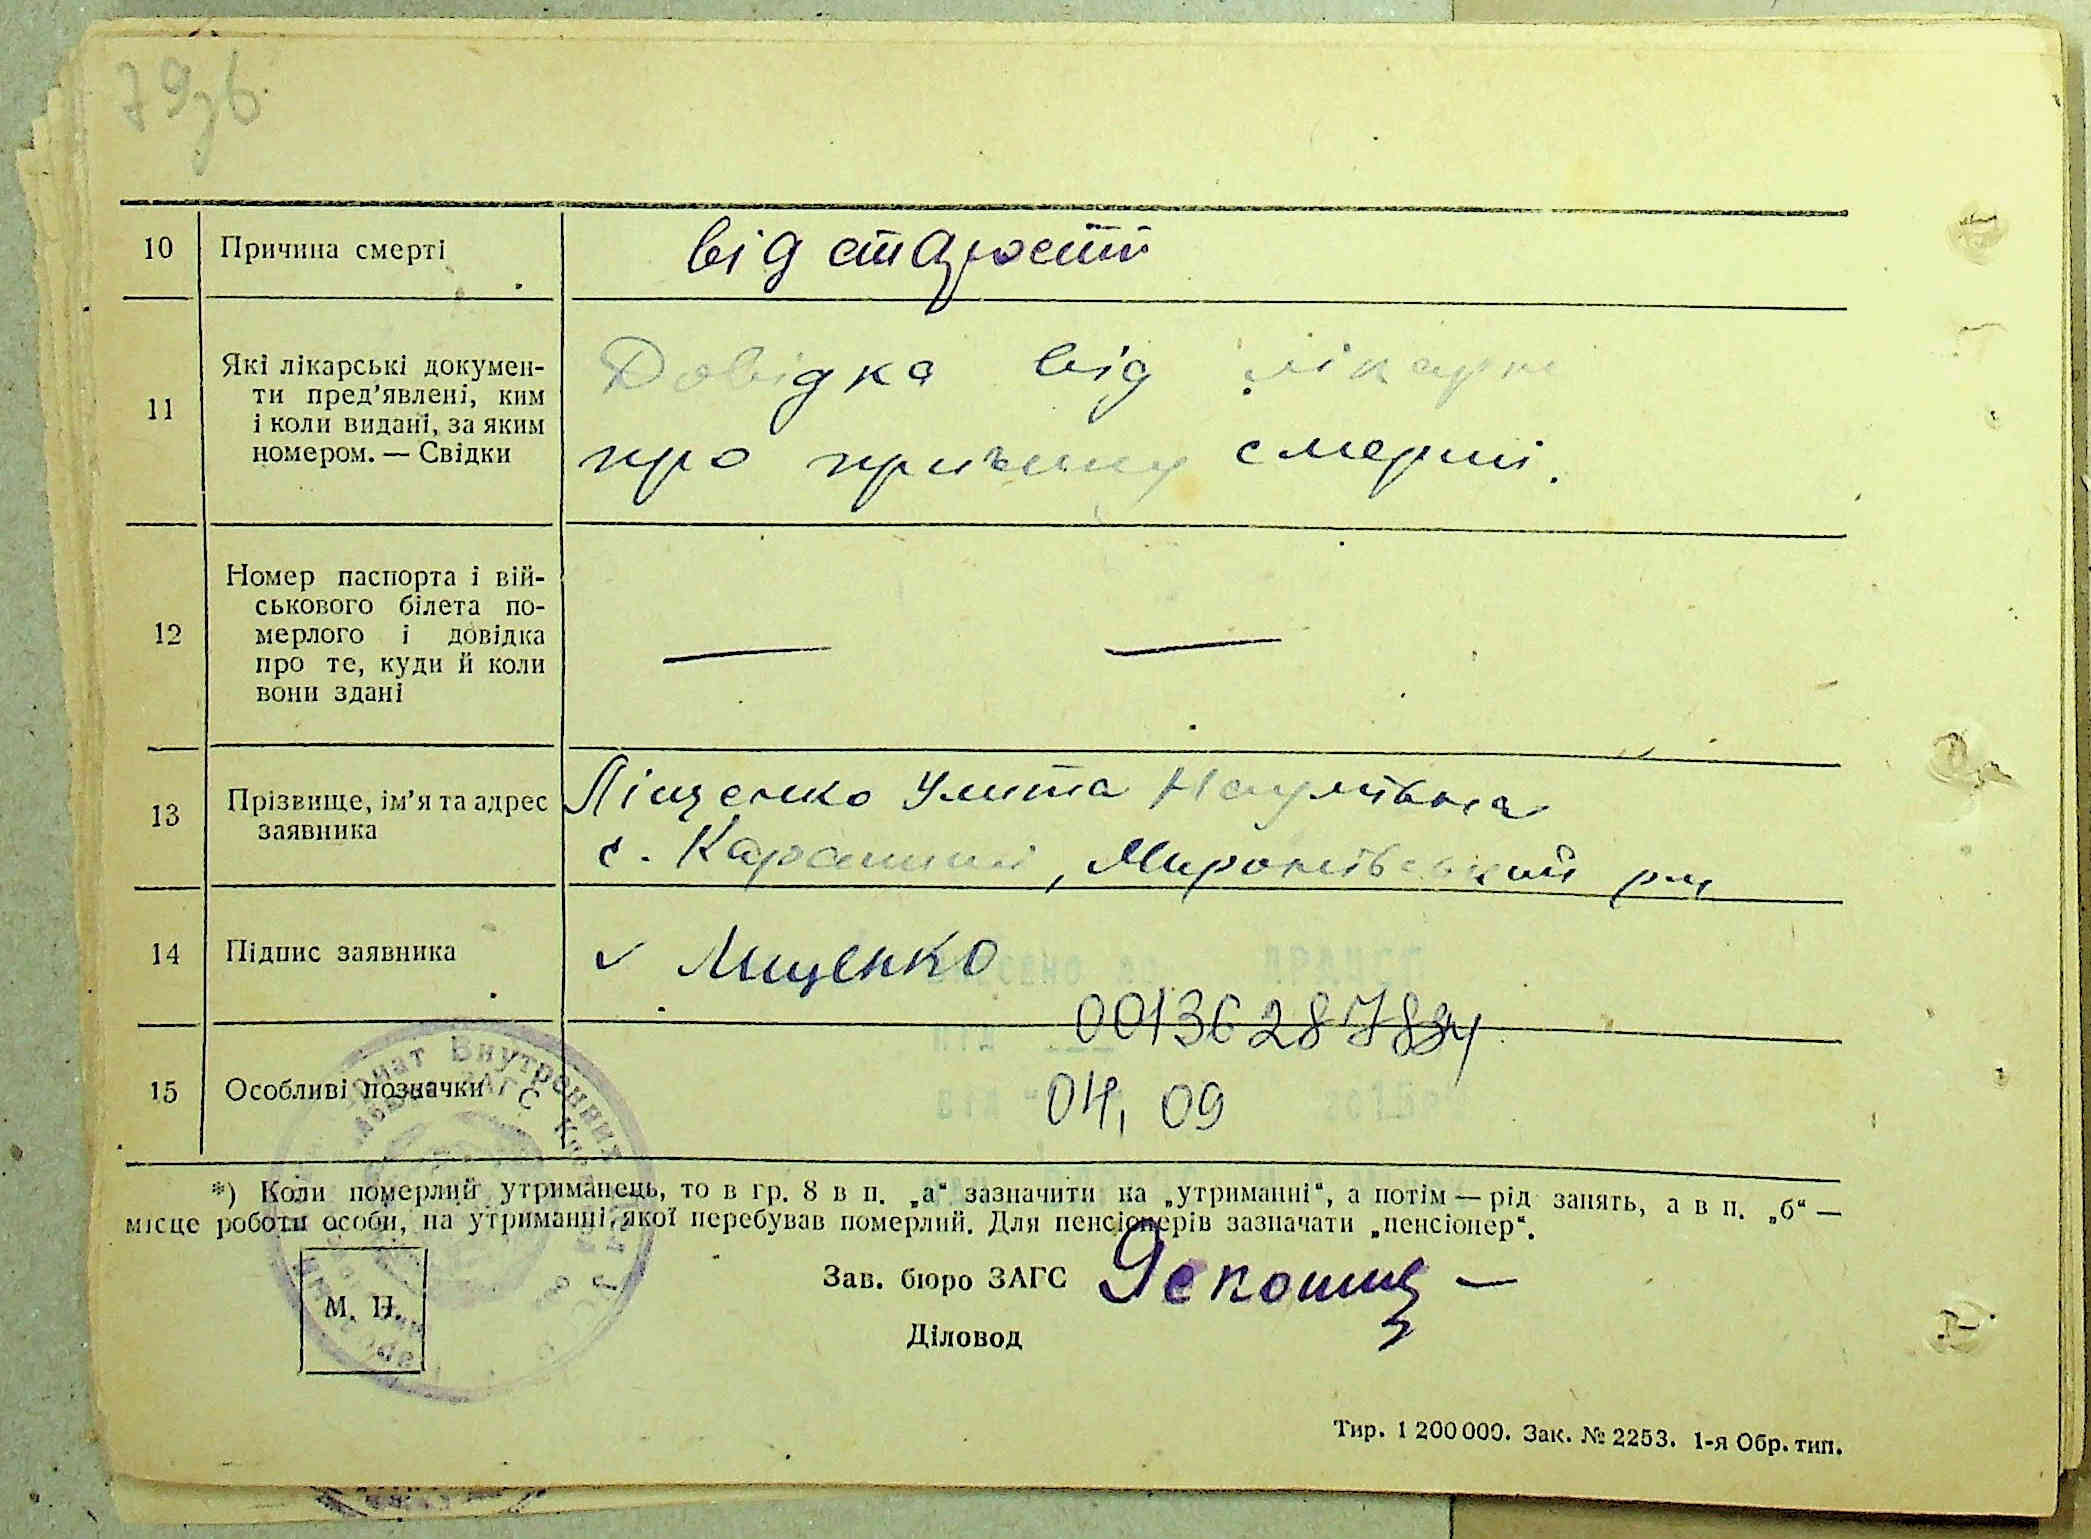 79зв.
10 Причина смерті від старости
11 Які лікарські докумен-
ти пред'явлені, ким
і коли видані, за яким
номером. — Свідки
Довідка від лікарні
про причину смерти.
12 Номер паспорта і вій-
ськового білета по-
мерлого і довідка
про те, куди й коли
вони здані
— —
13 Прізвище, ім'я та адрес
заявника
Ліщенко Улита
с. Карапиші, Миронівський р-н
14 Підпис заявника
✓ Лищенко
00136287834
15 Особливі позначки
04, 09
*) Коли померлий утриманець, то в гр. 8 в п. „а“ зазначити на „утриманні“, а потім — рід занять, а в п. „б“ —
місце роботи особи, на утриманні якої перебував померлий. Для пенсіонерів зазначати „пенсіонер“.
Зав. бюро ЗАГС
М. П.
Діловод
Тир. 1 200 000. Зак. № 2253. 1-я Обр. тип.